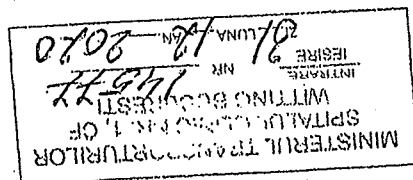 MINISTERUL TRANSPORTURILOR
SPITALUL CLINIC NR. 1, CF
WITTING BUCURESTI
INTRARE
IESIRE NR 14577
LUNA 12 AN 2020